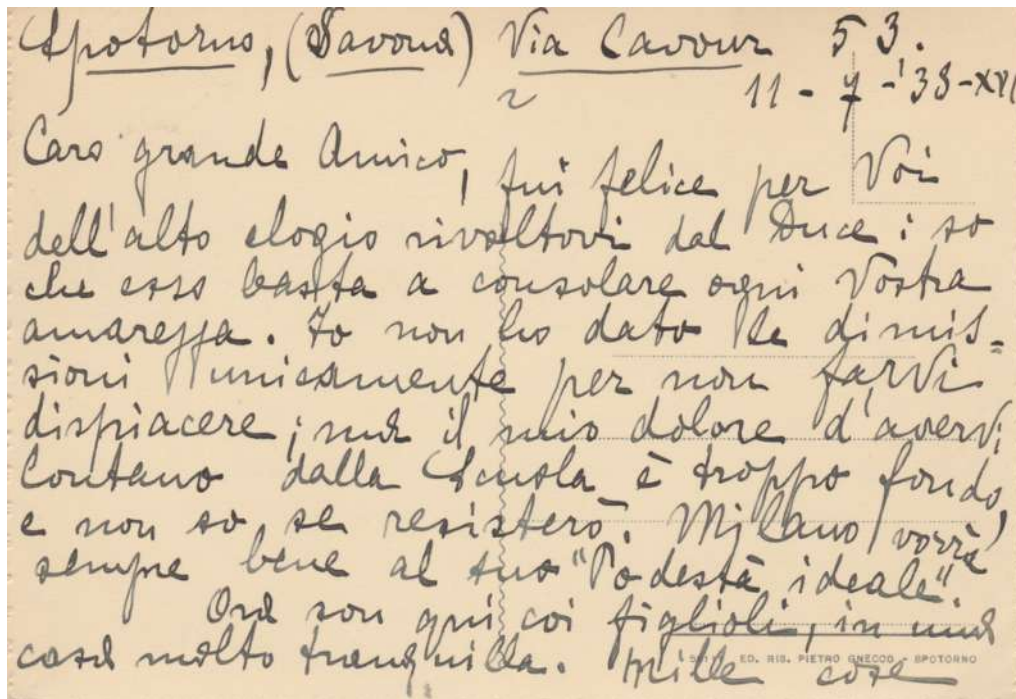 Spotorno, (Savona) Via Cavour 53.
11 - 7 - '38-XVI
Caro grande Amico, fui felice per Voi
dell'alto elogio rivoltovi dal Duce: so
che esso basta a consolare ogni Vostra
amarezza. Io non ho dato le dimis=
sioni unicamente per non farVi
dispiacere; ma il mio dolore d'averVi
lontano dalla Scuola è troppo fondo,
e non so se resisterò. Milano vorrà
sempre bene al suo "Podestà ideale".
Ora son qui coi figlioli, in una
casa molto tranquilla. Mille cose
ED. RIS. PIETRO GNECCO - SPOTORNO